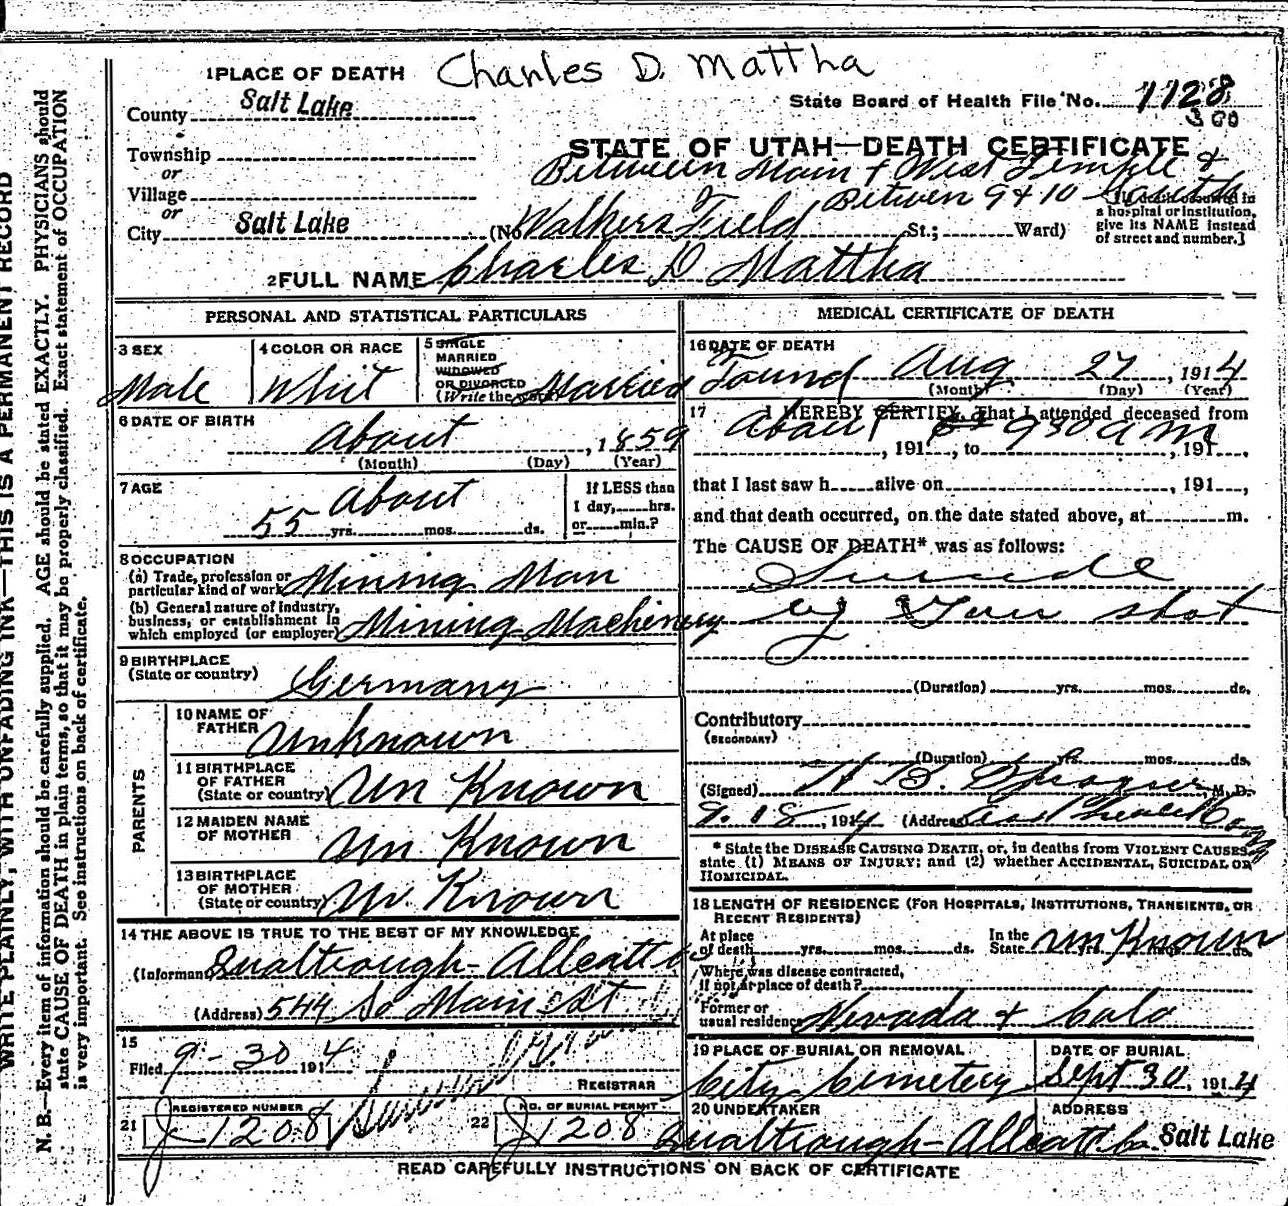 Charles D. Mattha
1 PLACE OF DEATH
County Salt Lake
State Board of Health File No. 1128
300
STATE OF UTAH—DEATH CERTIFICATE
Township
or
Village
or
City Salt Lake
Between Main & West Temple &
Betwen 9 & 10 South
(No Walkers Field St.; Ward)
[If death occurred in
a hospital or institution,
give its NAME instead
of street and number.]
2 FULL NAME Charles D Mattha
PERSONAL AND STATISTICAL PARTICULARS
3 SEX
Male
4 COLOR OR RACE
Whit
5 SINGLE
MARRIED
WIDOWED
OR DIVORCED
(Write the word) Married
6 DATE OF BIRTH
About, 1859
(Month) (Day) (Year)
7 AGE
About
55 yrs. mos. ds.
If LESS than
1 day, hrs.
or min.?
8 OCCUPATION
(a) Trade, profession or
particular kind of work Mining Man
(b) General nature of industry,
business, or establishment in
which employed (or employer) Mining Machinery
9 BIRTHPLACE
(State or country) Germany
PARENTS
10 NAME OF
FATHER Unknown
11 BIRTHPLACE
OF FATHER
(State or country) Un Known
12 MAIDEN NAME
OF MOTHER Un Known
13 BIRTHPLACE
OF MOTHER
(State or country) Un Known
14 THE ABOVE IS TRUE TO THE BEST OF MY KNOWLEDGE
(Informant)
(Address) 544 So Main St
15
Filed 9-30 1914
REGISTRAR
21 REGISTERED NUMBER
J 1208
22 NO. OF BURIAL PERMIT
J 1208
MEDICAL CERTIFICATE OF DEATH
16 DATE OF DEATH
Found Aug 27, 1914
(Month) (Day) (Year)
17 I HEREBY CERTIFY, That I attended deceased from
About 930 am
, 191 , to , 191 ,
that I last saw h alive on , 191 ,
and that death occurred, on the date stated above, at m.
The CAUSE OF DEATH* was as follows:
Suicide
by Gun shot
(Duration) yrs. mos. ds.
Contributory
(SECONDARY)
(Duration) yrs. mos. ds.
(Signed) H B. Sprague, M. D.
9.18, 1914 (Address)
* State the DISEASE CAUSING DEATH, or, in deaths from VIOLENT CAUSES,
state (1) MEANS OF INJURY; and (2) whether ACCIDENTAL, SUICIDAL OR
HOMICIDAL.
18 LENGTH OF RESIDENCE (FOR HOSPITALS, INSTITUTIONS, TRANSIENTS, OR
RECENT RESIDENTS)
At place
of death yrs. mos. ds.
In the
State yrs. Un Known ds.
Where was disease contracted,
if not at place of death?
Former or
usual residence Nevada & Calo
19 PLACE OF BURIAL OR REMOVAL
City Cemetery
DATE OF BURIAL
Sept 30, 1914
20 UNDERTAKER
ADDRESS
Salt Lake
READ CAREFULLY INSTRUCTIONS ON BACK OF CERTIFICATE
WRITE PLAINLY, WITH UNFADING INK—THIS IS A PERMANENT RECORD
N. B.—Every item of information should be carefully supplied. AGE should be stated EXACTLY. PHYSICIANS should
state CAUSE OF DEATH in plain terms, so that it may be properly classified. Exact statement of OCCUPATION
is very important. See instructions on back of certificate.